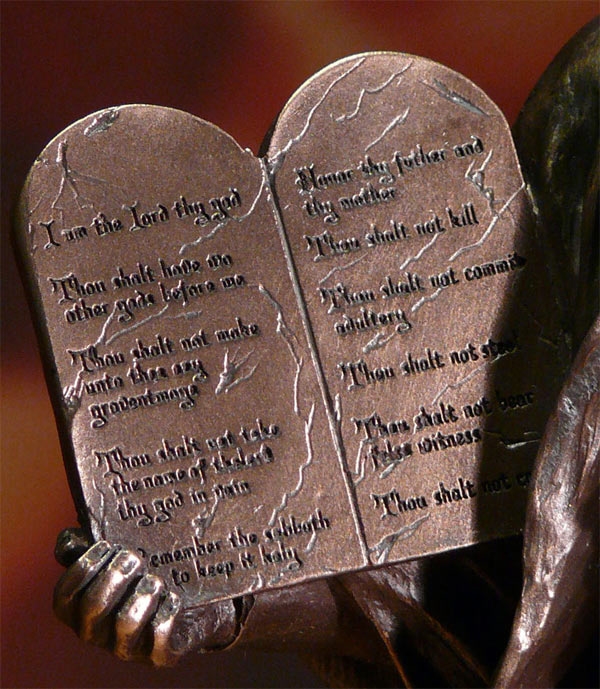 I am the Lord thy god
Thou shalt have no
other gods before me
Thou shalt not make
unto thee any
graventmage
Thou shalt not take
the name of the Lord
thy god in vain
Remember the sabboth
to keep it holy
Honor thy father and
thy mother
Thou shalt not kill
Thou shalt not commit
adultery
Thou shalt not steal
Thou shalt not bear
false witness
Thou shalt not